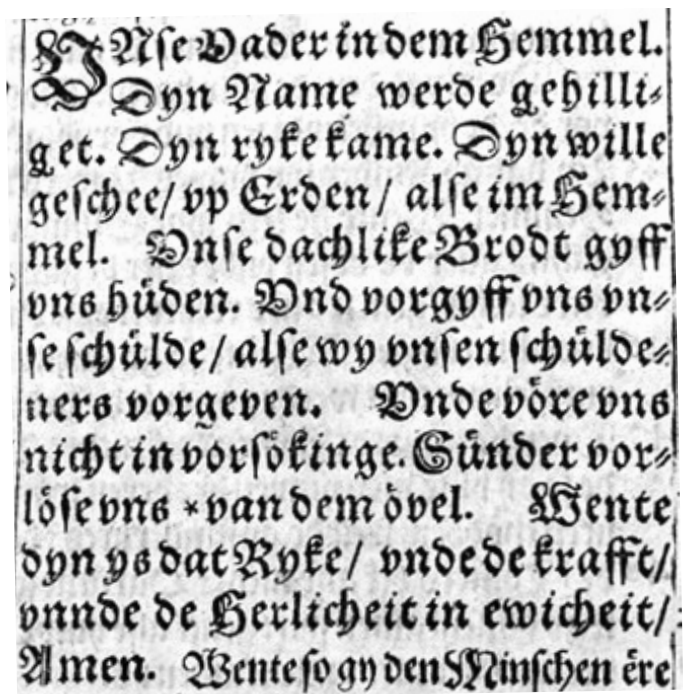 VNſe Vader in dem Hemmel.
Dyn Name werde gehilli⸗
get. Dyn ryke kame. Dyn wille
geſchee/ vp Erden/ alſe im Hem⸗
mel. Vnſe dachlike Brodt gyff
vns hüden. Vnd vorgyff vns vn⸗
ſe ſchülde/ alſe wy vnſen ſchülde⸗
ners vorgeven. Vnde vöre vns
nicht in vorſökinge. Sünder vor⸗
löſe vns *van dem övel. Wente
dyn ys dat Ryke/ vnde de krafft/
vnnde de Herlicheit in ewicheit/
Amen. Wente ſo gy den Minſchen ere